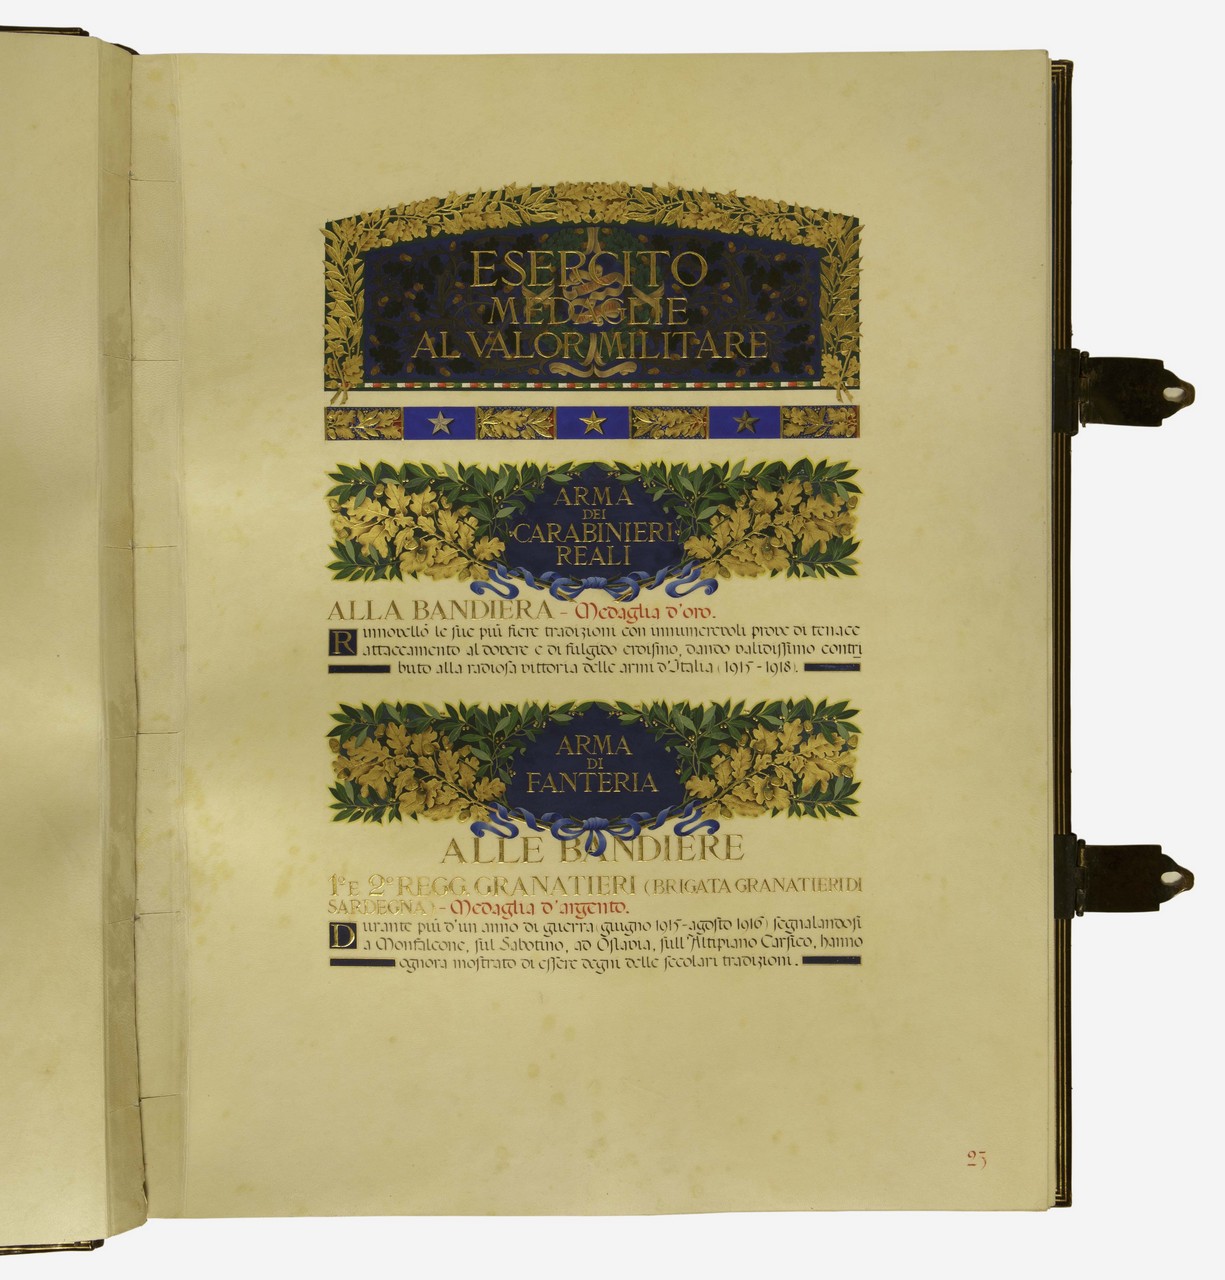 ESERCITO
MEDAGLIE
AL VALOR MILITARE
ARMA
DEI
CARABINIERI
REALI
ALLA BANDIERA - Medaglia d'oro.
Rinnovellò le sue più fiere tradizioni con innumerevoli prove di tenace
attaccamento al dovere e di fulgido eroismo, dando validissimo contri
buto alla radiosa vittoria delle armi d'Italia (1915-1918).
ARMA
DI
FANTERIA
ALLE BANDIERE
1º E 2º REGG. GRANATIERI (BRIGATA GRANATIERI DI
SARDEGNA) - Medaglia d'argento.
Durante più d'un anno di guerra (giugno 1915-agosto 1916) segnalandosi
a Monfalcone, sul Sabotino, ad Oslavia, sull'Altipiano Carsico, hanno
ognora mostrato di essere degni delle secolari tradizioni.
23